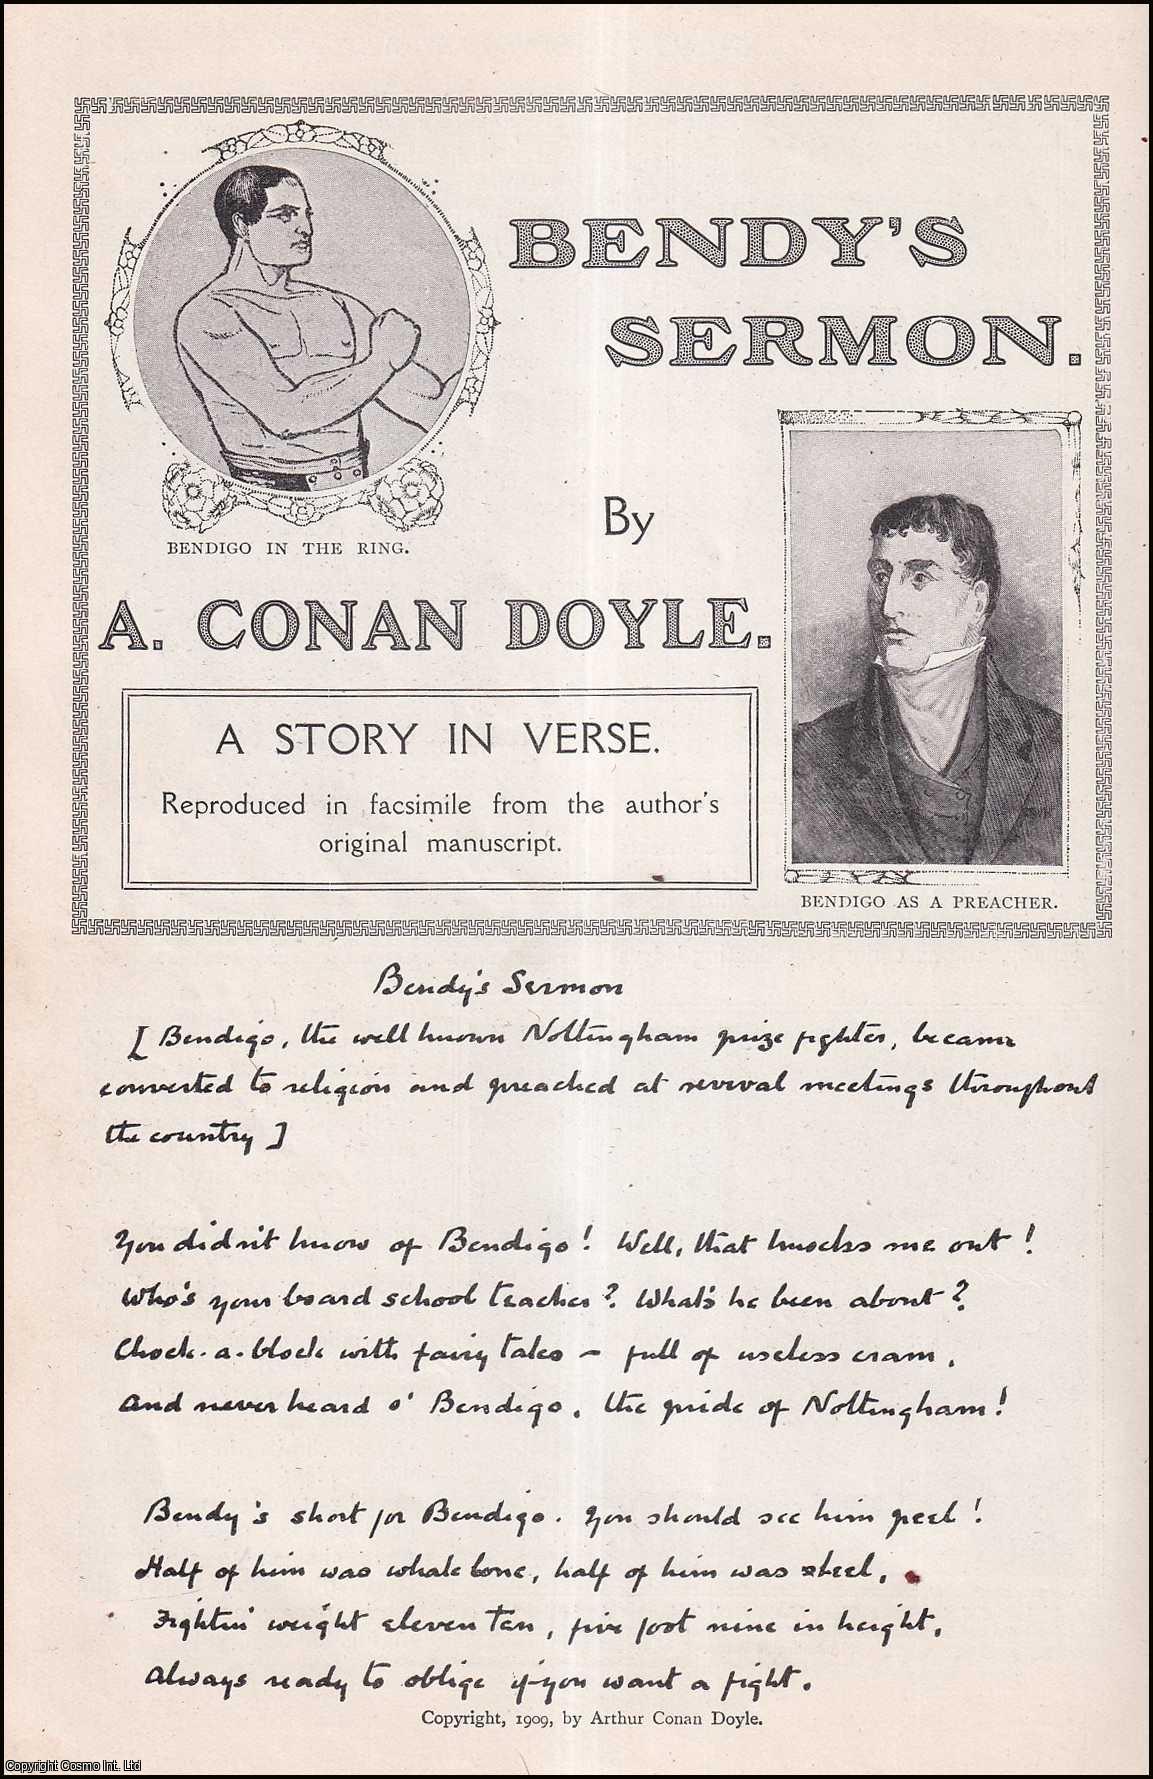 BENDY'S
SERMON.
BENDIGO IN THE RING.
By
A. CONAN DOYLE.
A STORY IN VERSE.
Reproduced in facsimile from the author's
original manuscript.
BENDIGO AS A PREACHER.
Bendy's Sermon
[ Bendigo, the well known Nottingham prize fighter, became
converted to religion and preached at revival meetings throughout
the country ]
You didn't know of Bendigo! Well, that knocks me out!
Who's your board school teacher? What's he been about?
Chock-a-block with fairy tales – full of useless cram,
And never heard o' Bendigo, the pride of Nottingham!
Bendy's short for Bendigo. You should see him peel!
Half of him was whalebone, half of him was steel,
Fightin' weight eleven ten, five foot nine in height,
Always ready to oblige if you want a fight.
Copyright, 1909, by Arthur Conan Doyle.
Copyright Cosmo Int. Ltd